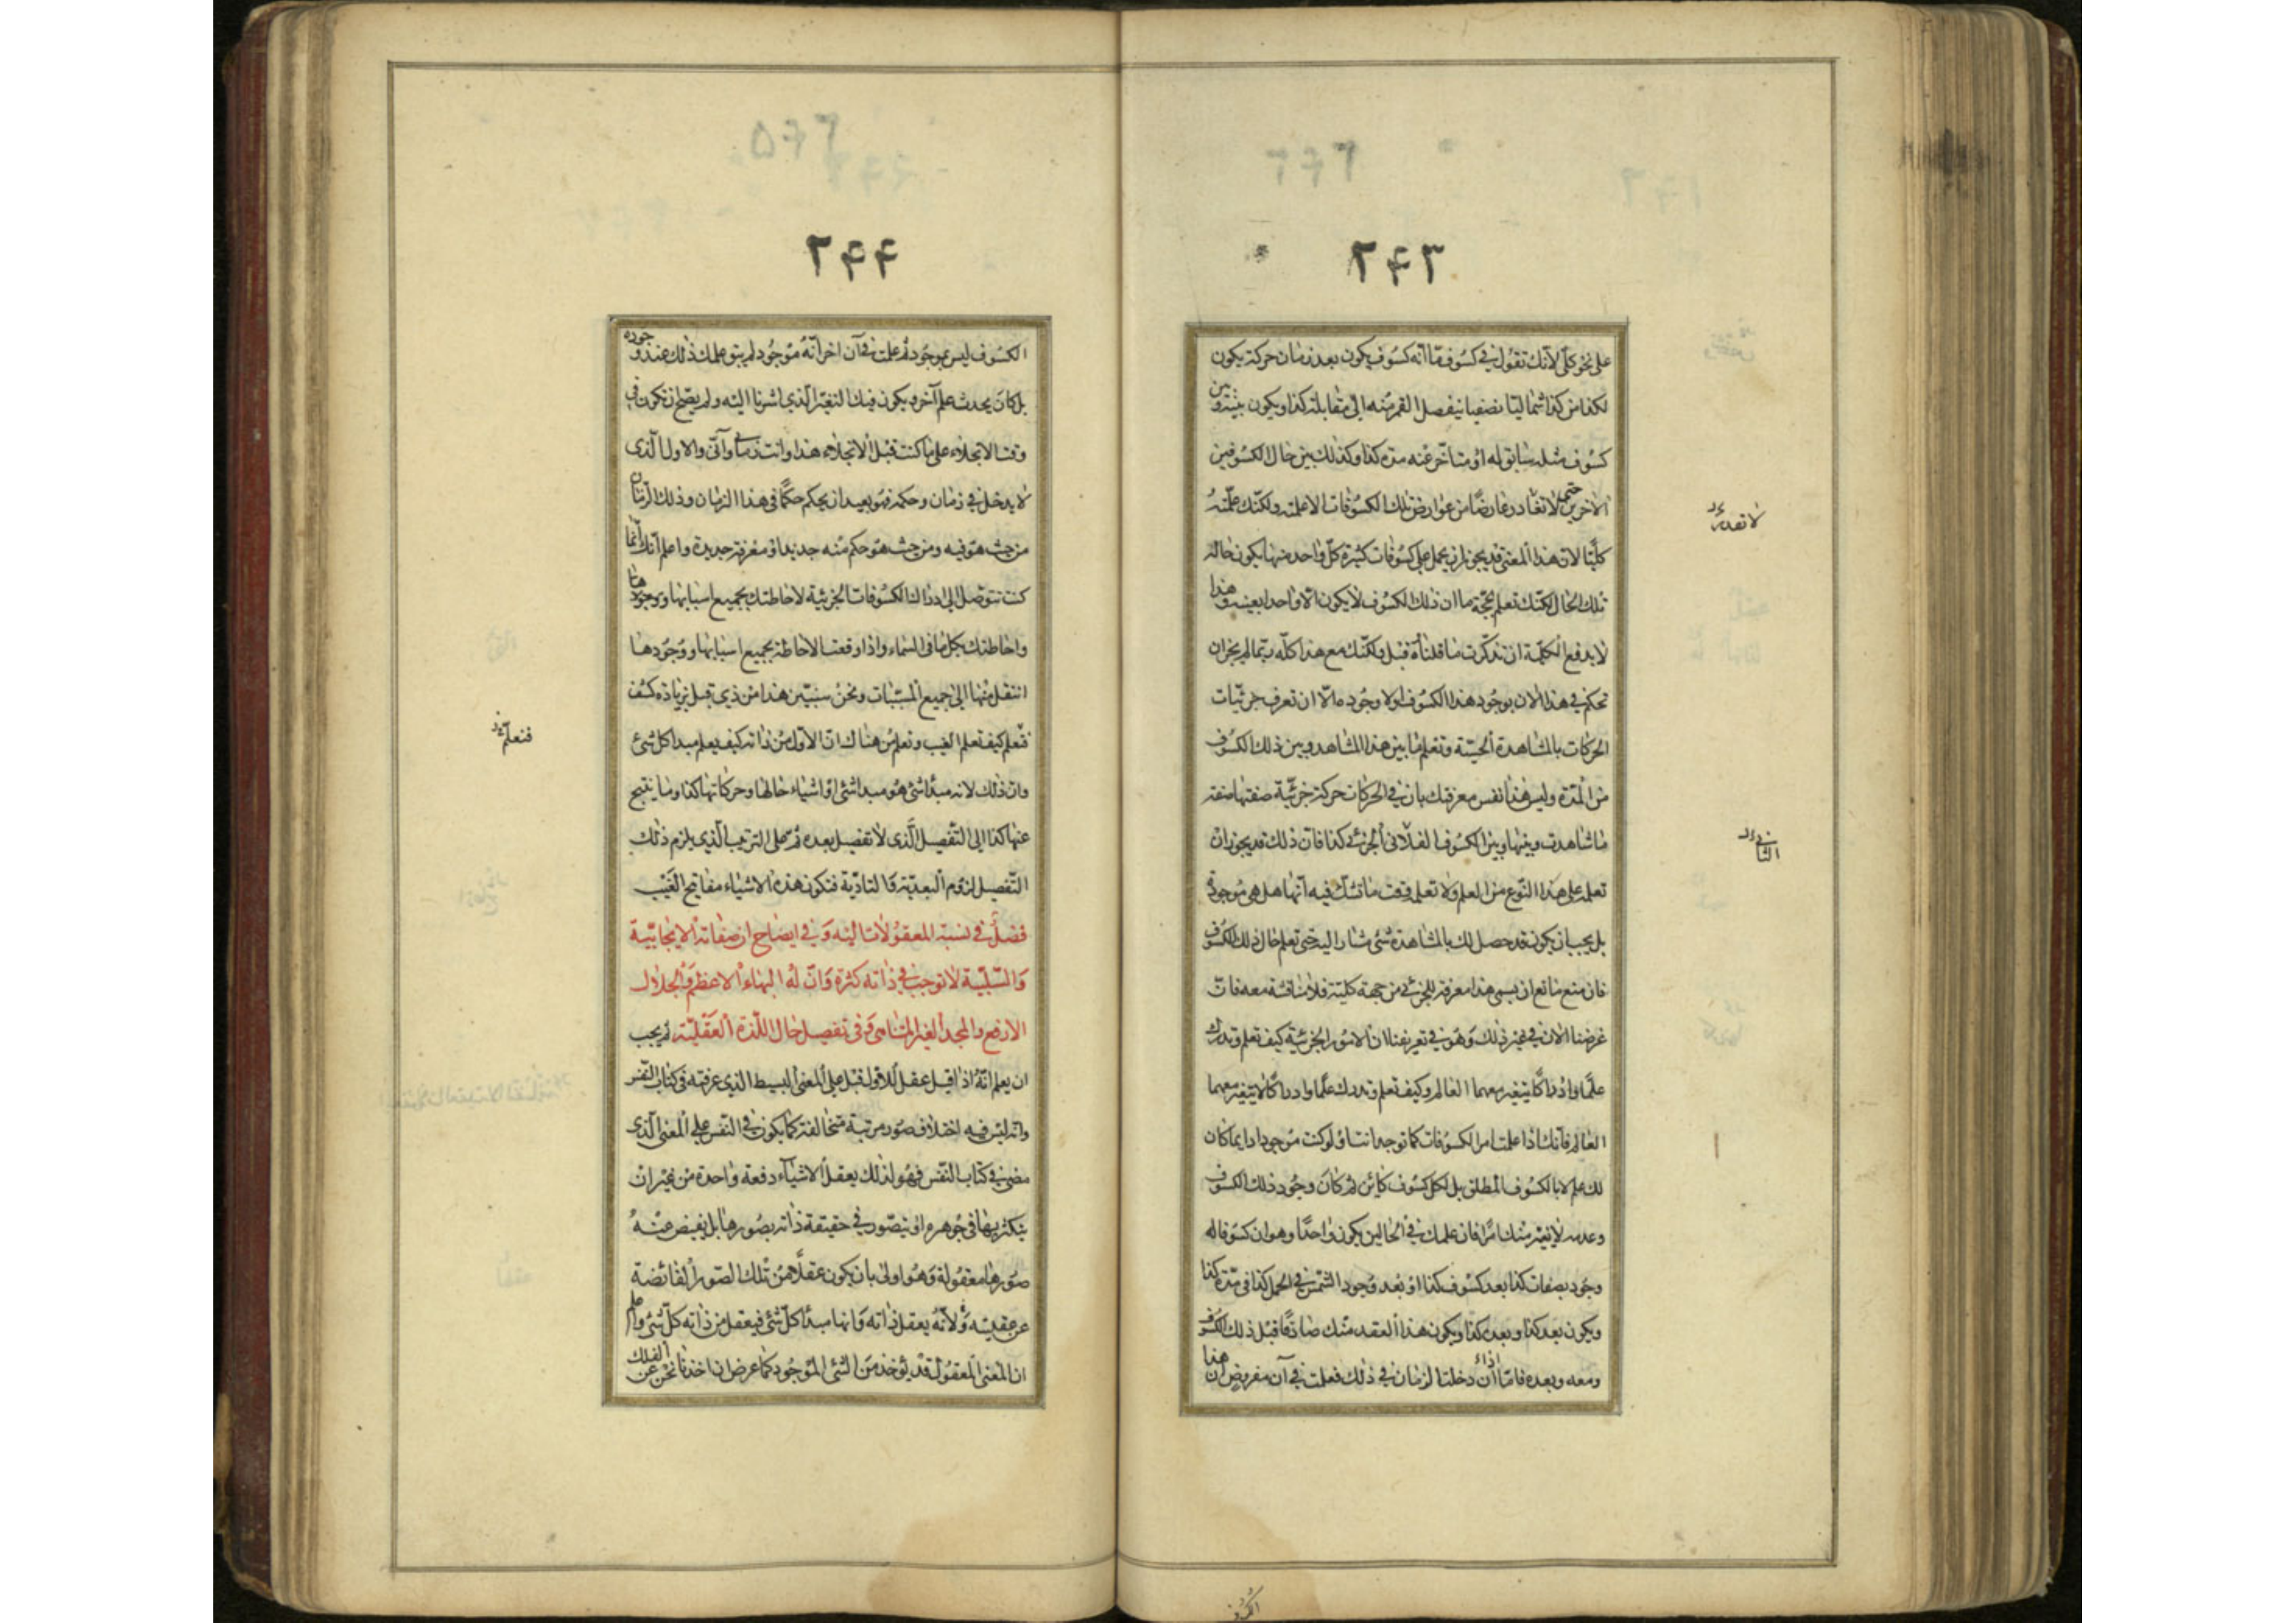 ٢۴٣
على نحو كلّى لأنك تقول فى كسوف مّا انّه كسوف يكون بعد زمان حركة يكون
لكذا من كذا شماليّا نصفيا ينفصل القمر منه الى مقابلة كذا ويكون بينه وبين
كسوف مثله سابق له او متأخر عنه مدة كذا وكذلك بين حال الكسوفين
الاخرين حتى لا تغادر عارضًا من عوارض تلك الكسوفات الا علمته ولكنّك علمته
كليّا لان هذا المعنى قد يجوز ان يحمل على كسوفات كثيرة كلّ واحد منها يكون حاله
تلك الحال لكنّك تعلم بحجّة ما ان ذلك الكسوف لا يكون الّا واحدا بعينه وهذا
لا يدفع الكليّة ان تذكّرت ما قلناه قبل ولكنّك مع هذا كلّه ربّما لم يجز ان
تحكم فى هذا الان بوجود هذا الكسوف او لا وجوده الّا ان تعرف جزئيّات
الحركات بالمشاهدة الحسيّة وتعلم ما بين هذا المشاهد وبين ذلك الكسوف
من المدّة وليس هذا نفس معرفتك بان فى الحركات حركة جزئيّة صفتها صفة
ما شاهدت وبينها وبين الكسوف الفلانى الجزئى كذا فانّ ذلك قد يجوز ان
تعلمه على هذا النّوع من العلم ولا تعلم وقت ما تشك فيه انّها هل هى موجودة
بل يجب ان يكون قد حصل لك بالمشاهدة شئ مشار اليه حتى تعلم حال ذلك الكسوف
فان منع مانع ان يسمى هذا معرفة للجزئى من جهة كليّة فلا مناقشة معه فانّ
غرضنا الان فى غير ذلك وهو فى تعريفنا ان الامور الجزئيّة كيف تعلم وتدرك
علمًا وادراكًا يتغير معهما العالم وكيف تعلم وتدرك علمًا وادراكًا لا يتغير معهما
العالم فانّك اذا علمت امر الكسوفات كما توجد انت او لو كنت موجودا دايما كان
لك علم لا بالكسوف المطلق بل لكل كسوف كائن ثم كان وجود ذلك الكسوف
وعدمه لا يغير منك امرًا فان علمك فى الحالين يكون واحدًا وهو ان كسوفا له
وجود بصفات كذا بعد كسوف كذا او بعد وجود الشمس فى الحمل كذا فى مدّة كذا
ويكون بعد كذا وبعده كذا ويكون هذا العقد منك صادقًا قبل ذلك الكسوف
ومعه وبعده فامّا ان دخلت الزمان فى ذلك فعلمت فى آن مفروض ان هذا
لا تقدر
الثانى
٢۴۴
الكسوف ليس بموجود ثم علمت فى آن اخر انّه موجود لم يبق علمك ذلك عند وجوده
بل كان يحدث علم آخر ويكون فيك التغيّر الّذى اشرنا اليه ولم يصحّ ان تكون فى
وقت الانجلاء على ما كنت قبل الانجلاء هذا وانت زمانى وآنى والاول الّذى
لا يدخل فى زمان وحكمه فهو بعيد ان يحكم حكمًا فى هذا الزمان وذلك الزمان
من حيث هو فيه ومن حيث هو حكم منه جديد او معرفة جديدة واعلم انّك انّما
كنت تتوصّل الى ادراك الكسوفات الجزئية لاحاطتك بجميع اسبابها ووجودها
واحاطتك بكل ما فى السّماء واذا وقعت الاحاطة بجميع اسبابها ووجودها
انتقل منها الى جميع المسبّبات ونحن سنبيّن هذا من ذى قبل بزيادة كشف
فتعلم كيف تعلم الغيب وتعلم من هناك انّ الاوّل من ذاته كيف يعلم مبدا كلّ شئ
وانّ ذلك لانه مبدأ شئ هو مبدا شئ او اشياء حالها وحركاتها كذا وما ينتج
عنها كذا الى التّفصيل الّذى لا تفصيل بعده ثم على الترتيب الّذى يلزم ذلك
التّفصيل لزوم البعديّة والتادّية فتكون هذه الاشياء مفاتيح الغيب
فصل فى نسبة المعقولات اليه وفى ايضاح ان صفاته الايجابيّة
والسّلبيّة لا توجب فى ذاته كثرة وانّ له البهاء الاعظم والجلال
الارفع والمجد الغير المتناهى وفى تفصيل حال اللّذة العقليّة ثم يجب
ان يعلم انّه اذا قيل عقل للاوّل قيل على المعنى البسيط الذى عرفته فى كتاب النفس
وانه ليس فيه اختلاف صور مرتبة متخالفة كما يكون فى النّفس على المعنى الّذى
مضى فى كتاب النّفس فهو لذلك يعقل الاشيآء دفعة واحدة من غير ان
يتكثّر بها فى جوهره او يتصوّر فى حقيقة ذاته بصورها بل يفيض عنه
صورها معقولة وهو اولى بان يكون عقلًا من تلك الصّور الفائضة
عن عقليته ولانّه يعقل ذاته وانها مبدأ كلّ شئ فيعقل من ذاته كلّ شئ واعلم
ان المعنى المعقول قد يؤخذ من الشئ الموجود كما عرض ان اخذنا نحن عن الفلك
فتعلم